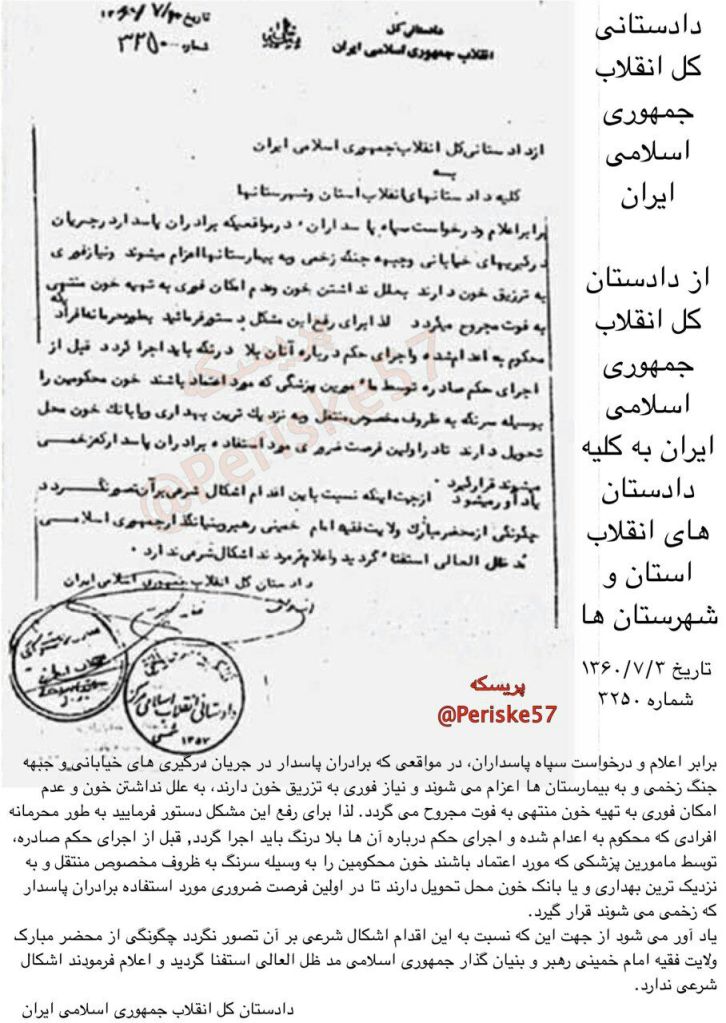 تاریخ ۱۳۶۰/۷/۳
شماره ۳۲۵۰
دادستانی کل
انقلاب جمهوری اسلامی ایران
از دادستانی کل انقلاب جمهوری اسلامی ایران
به
کلیه دادستانهای انقلاب استان و شهرستانها
برابر اعلام و درخواست سپاه پاسداران، در مواقعیکه برادران پاسدار در جریان
درگیریهای خیابانی و جبهه جنگ زخمی و به بیمارستانها اعزام میشوند و نیاز فوری
به تزریق خون دارند بعلل نداشتن خون و عدم امکان فوری به تهیه خون منتهی
به فوت مجروح میگردد لذا برای رفع این مشکل دستور فرمائید بطور محرمانه افرادیکه
محکوم به اعدام شده و اجرای حکم درباره آنان بلادرنگ باید اجرا گردد قبل از
اجرای حکم صادره توسط مامورین پزشکی که مورد اعتماد باشند خون محکومین را
بوسیله سرنگ به ظروف مخصوص منتقل و به نزدیک ترین بهداری و یا بانک خون محل
تحویل دارند تا در اولین فرصت ضروری مورد استفاده برادران پاسدار که زخمی
میشوند قرار گیرد
یادآور میشود از جهت اینکه نسبت باین اقدام اشکال شرعی بر آن تصور نگردد
چگونگی از محضر مبارک ولایت فقیه امام خمینی رهبر و بنیانگذار جمهوری اسلامی
مد ظل العالی استفتاء گردید و اعلام فرمودند اشکال شرعی ندارد.
دادستان کل انقلاب جمهوری اسلامی ایران
دادستانی انقلاب اسلامی مرکز
۱۳۵۷
پریسکه
@Periske57
دادستانی
کل انقلاب
جمهوری
اسلامی
ایران
از دادستان
کل انقلاب
جمهوری
اسلامی
ایران به کلیه
دادستان
های انقلاب
استان و
شهرستان ها
تاریخ ۱۳۶۰/۷/۳
شماره ۳۲۵۰
پریسکه
@Periske57
برابر اعلام و درخواست سپاه پاسداران، در مواقعی که برادران پاسدار در جریان درگیری های خیابانی و جبهه
جنگ زخمی و به بیمارستان ها اعزام می شوند و نیاز فوری به تزریق خون دارند، به علل نداشتن خون و عدم
امکان فوری به تهیه خون منتهی به فوت مجروح می گردد. لذا برای رفع این مشکل دستور فرمایید به طور محرمانه
افرادی که محکوم به اعدام شده و اجرای حکم درباره آن ها بلا درنگ باید اجرا گردد, قبل از اجرای حکم صادره،
توسط مامورین پزشکی که مورد اعتماد باشند خون محکومین را به وسیله سرنگ به ظروف مخصوص منتقل و به
نزدیک ترین بهداری و یا بانک خون محل تحویل دارند تا در اولین فرصت ضروری مورد استفاده برادران پاسدار
که زخمی می شوند قرار گیرد.
یاد آور می شود از جهت این که نسبت به این اقدام اشکال شرعی بر آن تصور نگردد چگونگی از محضر مبارک
ولایت فقیه امام خمینی رهبر و بنیان گذار جمهوری اسلامی مد ظل العالی استفتا گردید و اعلام فرمودند اشکال
شرعی ندارد.
دادستان کل انقلاب جمهوری اسلامی ایران